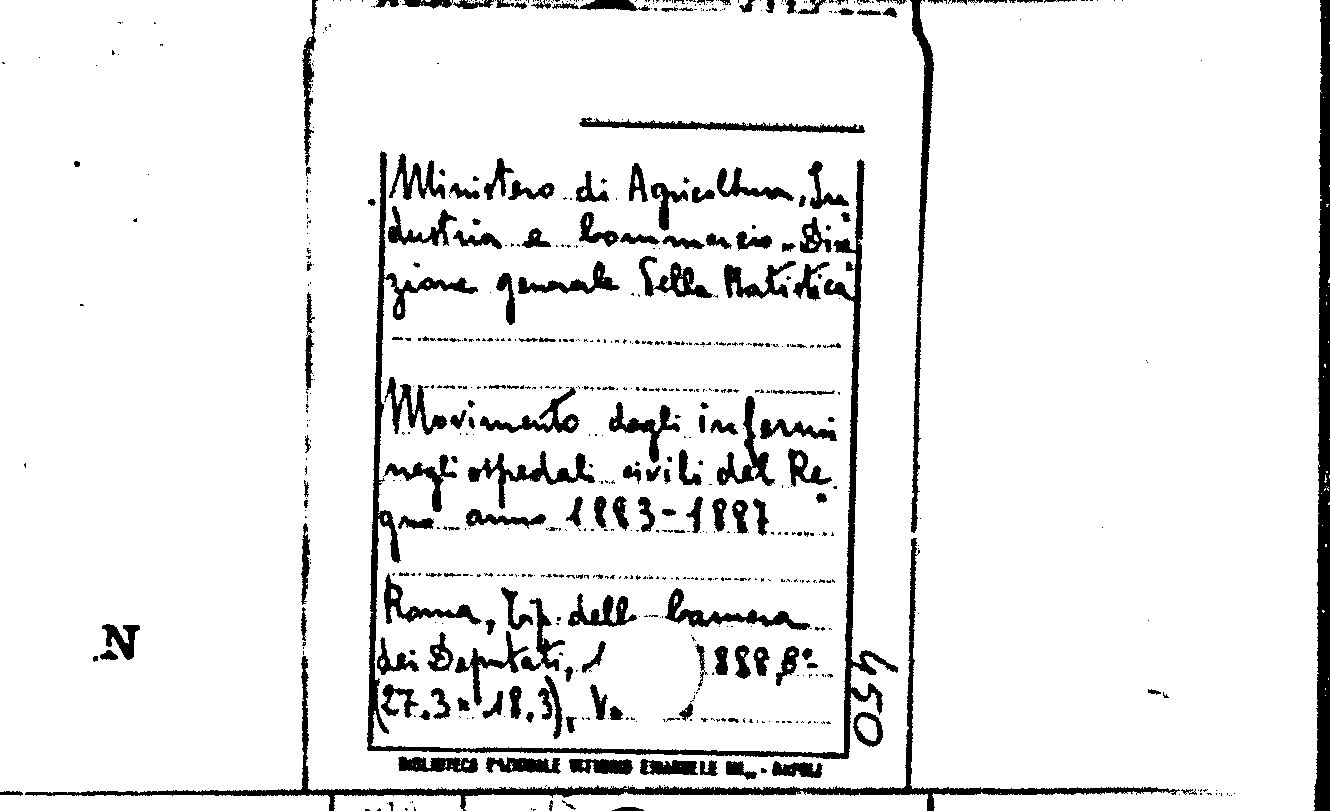 Ministero di Agricoltura, In
dustria e Commercio - Dire
zione generale della Statistica
Movimento degli infermi
negli ospedali civili del Re
gno anno 1883-1887
Roma, Tip. della Camera
dei Deputati, 1 1888, 8°-
(27.3 x 18.3), V.
BIBLIOTECA NAZIONALE VITTORIO EMANUELE III - NAPOLI
450
N